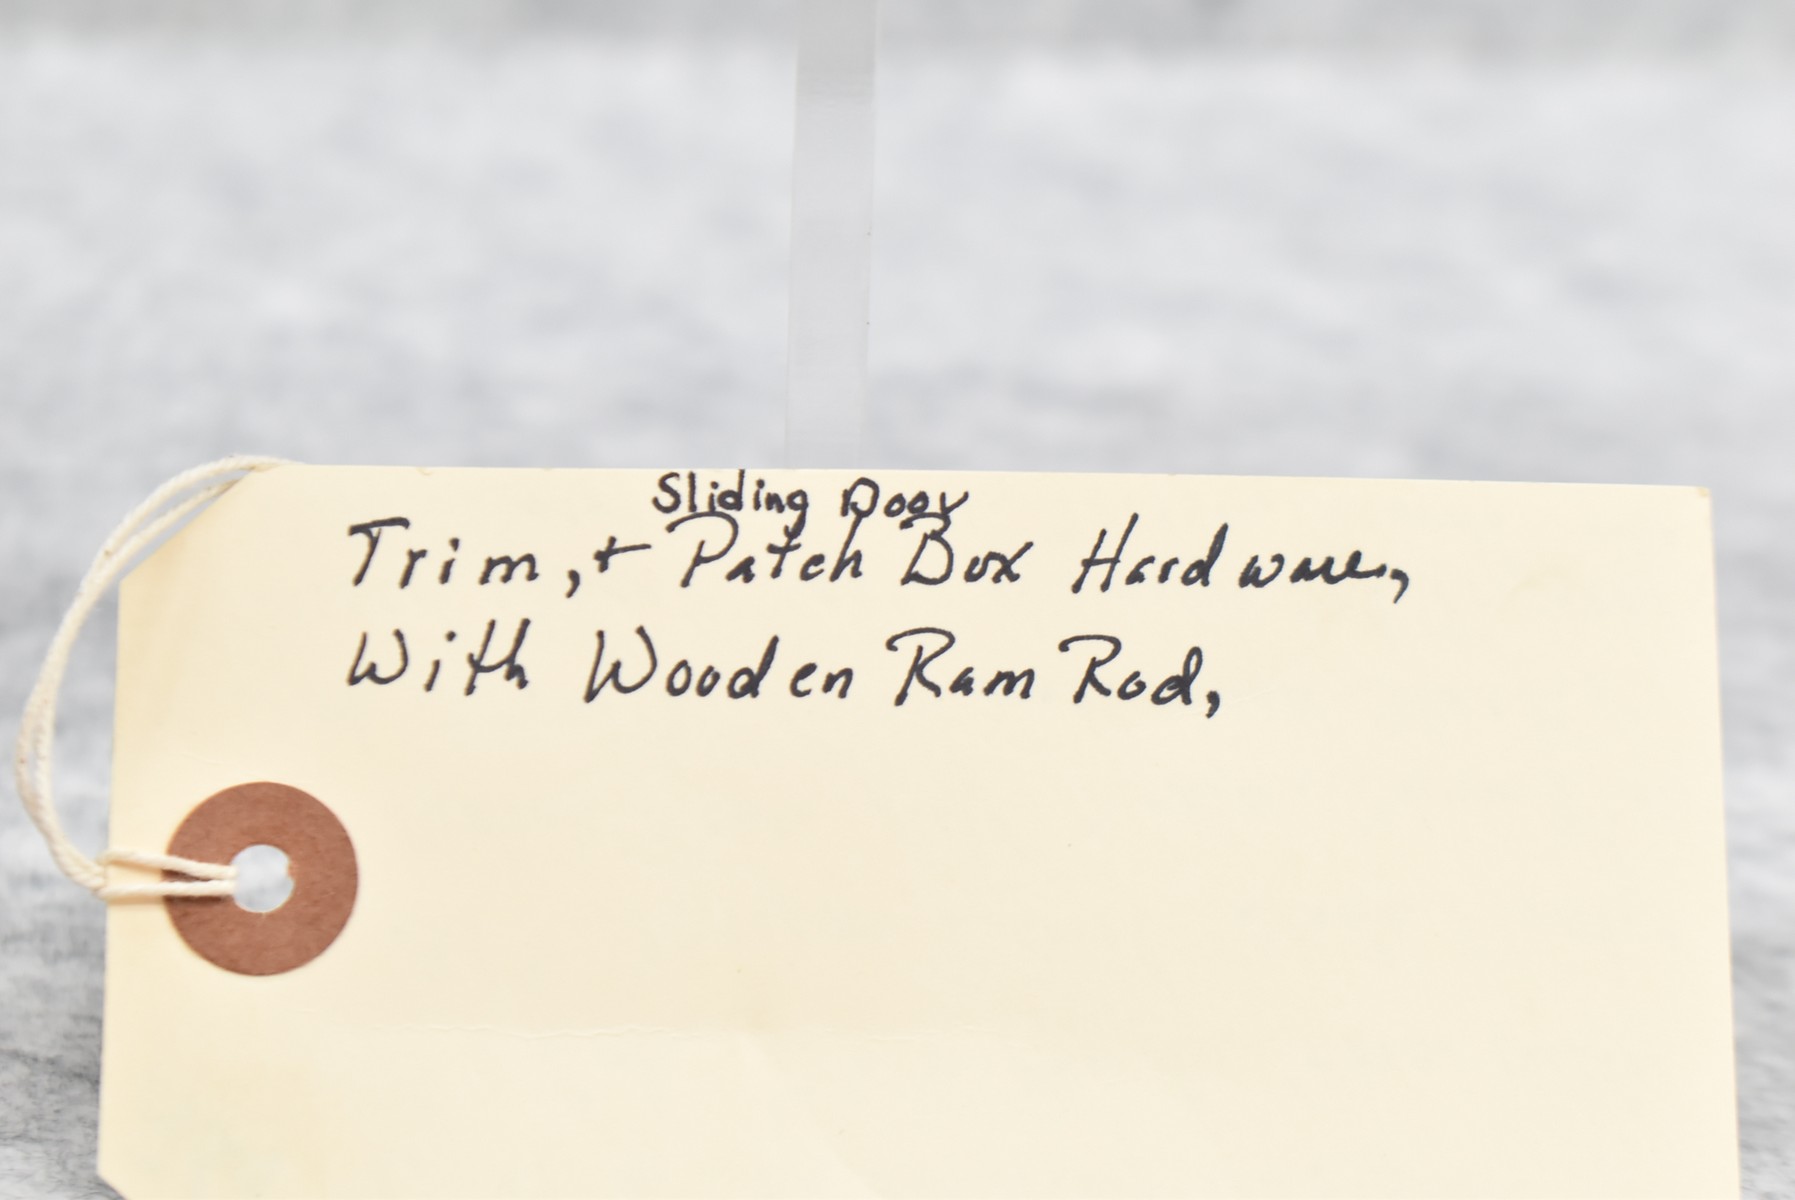 Sliding Door
Trim, + Patch Box Hardware,
With Wooden Ram Rod,